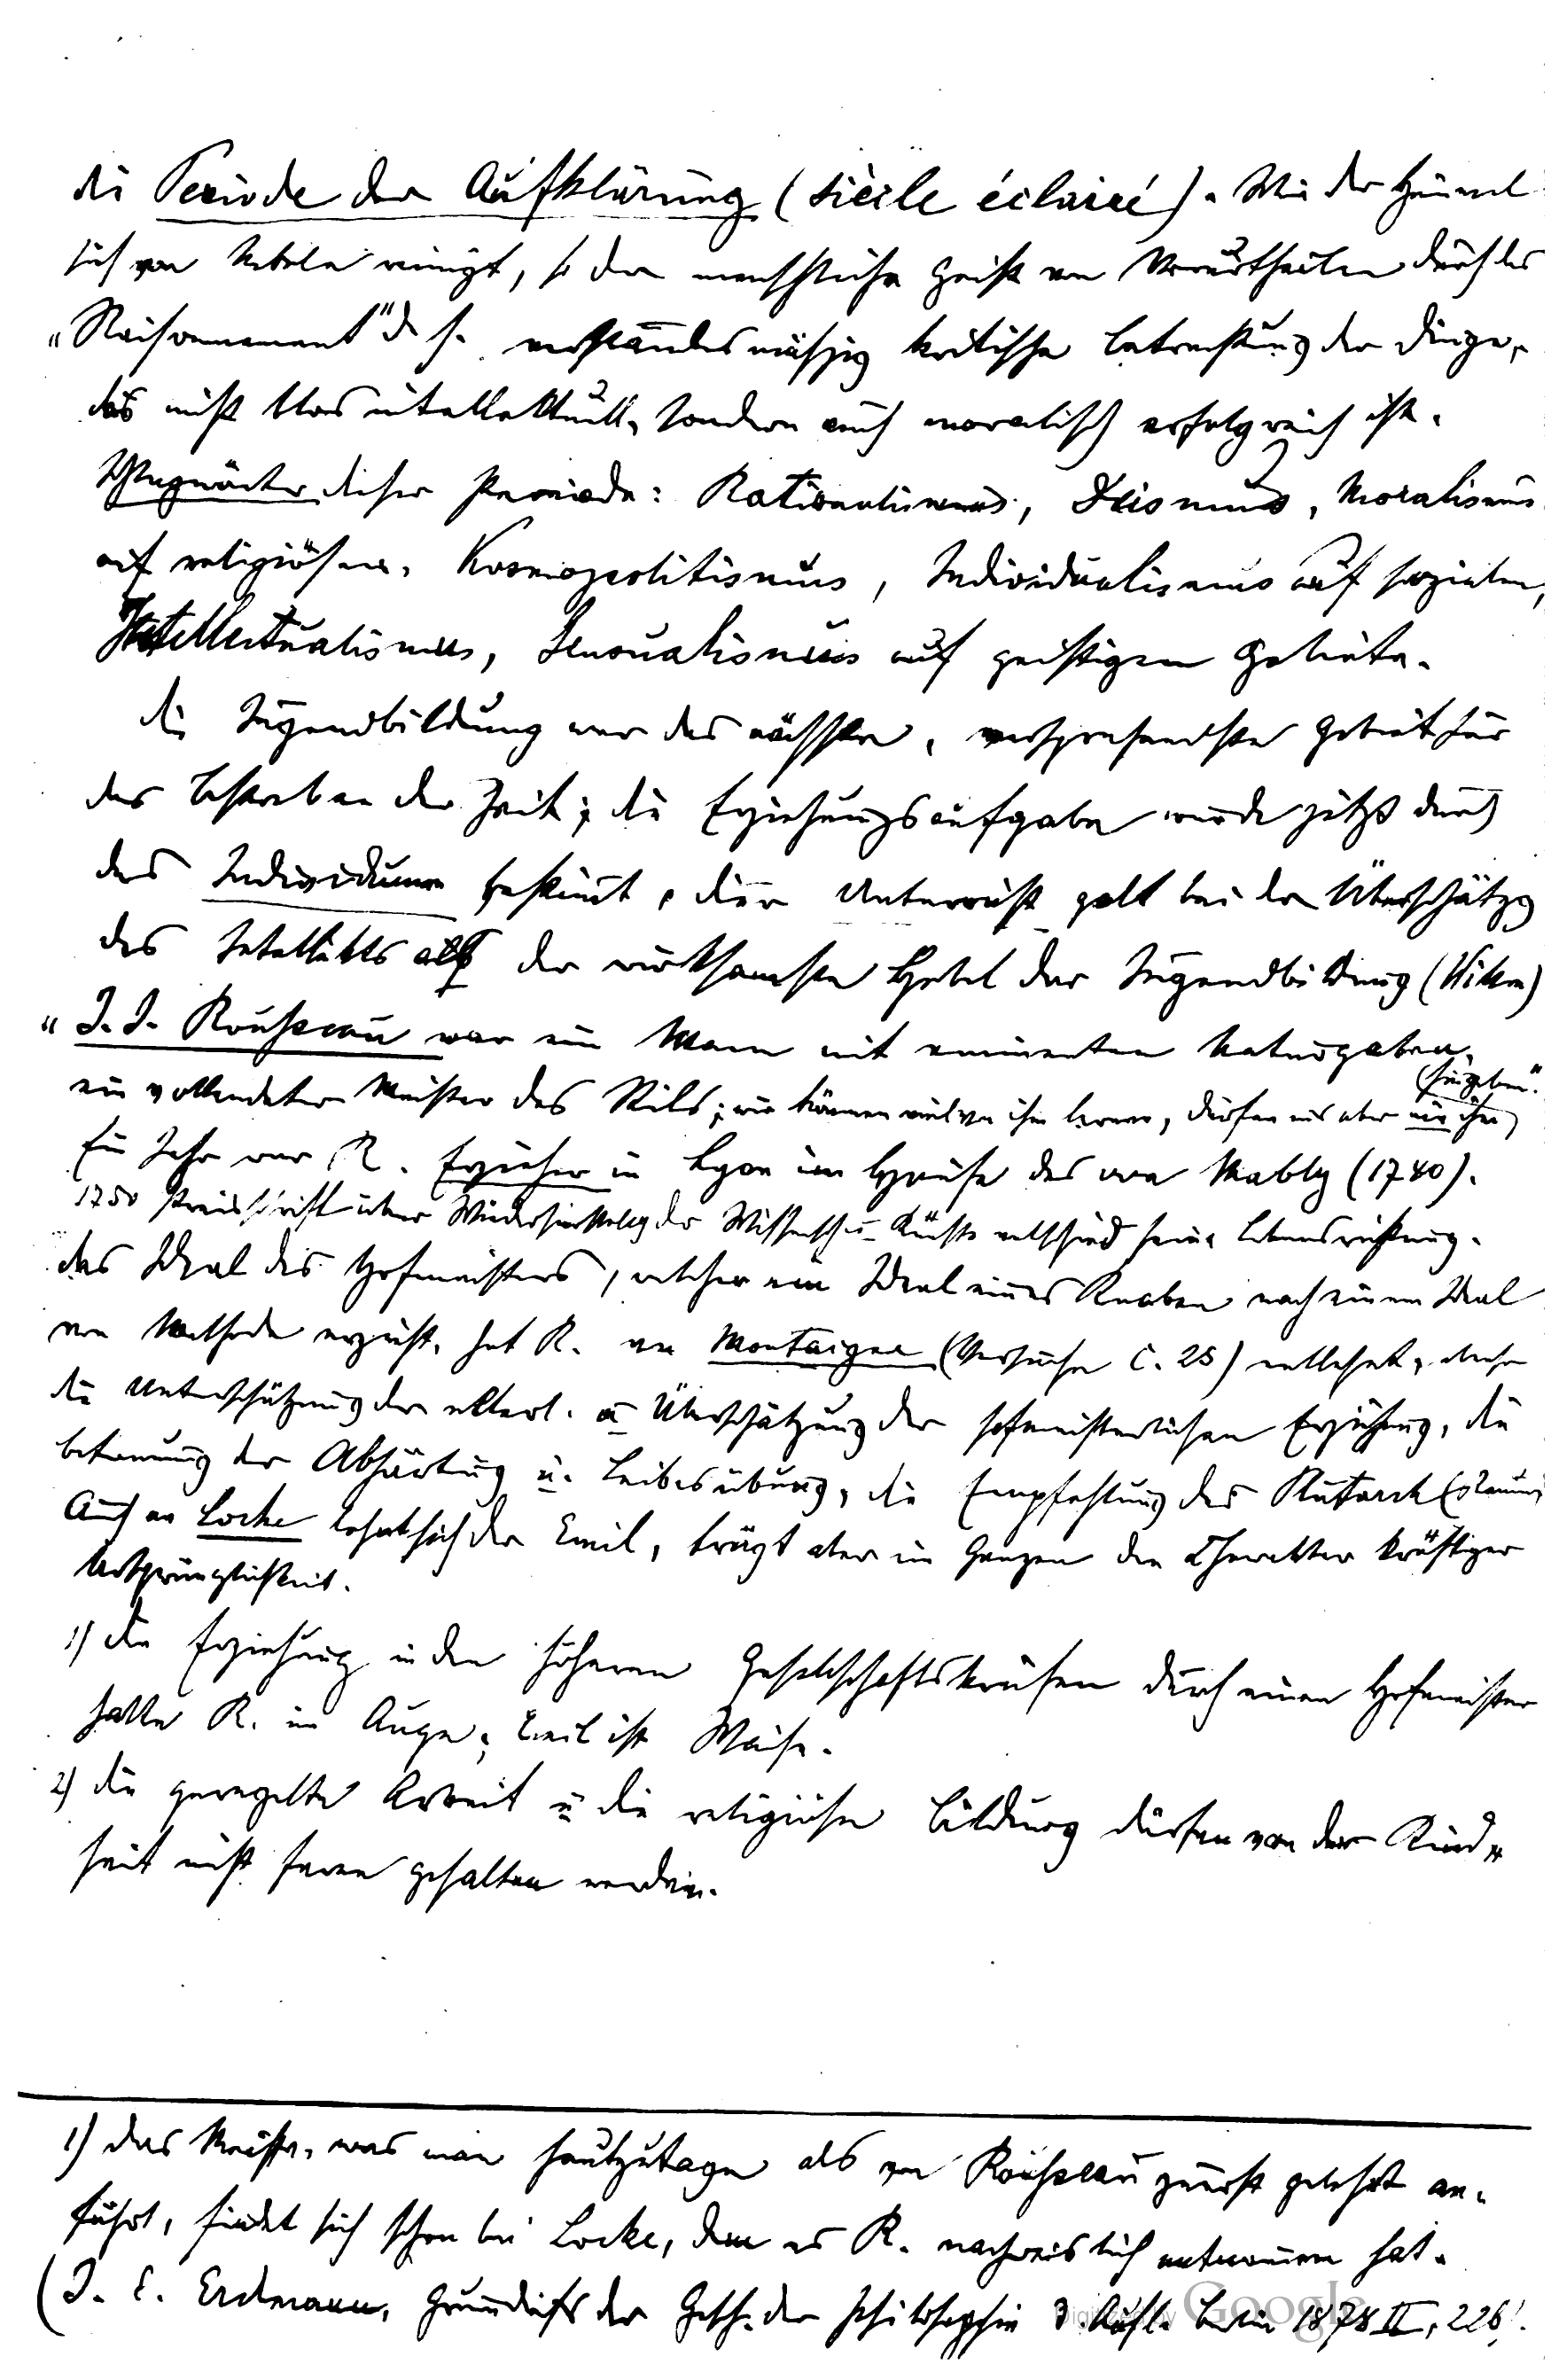 die Periode der Aufklärung (siècle éclairé). Wie der Himmel
sich von Nebeln reinigt, so der menschliche Geist von Vorurtheilen durch das
„Raisonnement" d. h. verstandesmäßig kritische Betrachtung der Dinge,
das nicht blos intellektuell, sondern auch moralisch erfolgreich ist.
Schlagwörter dieser Periode: Rationalismus, Deismus, Moralismus
auf religiösem, Kosmopolitismus, Individualismus auf sozialem,
Intellectualismus, Sensualismus auf geistigem Gebiete.
Die Jugendbildung war das nächste, versprechendste Gebiet für
das Bestreben der Zeit; die Erziehungsaufgabe wurde jetzt durch
das Individuum bestimmt, der Unterricht galt bei der Überschätzg
des Intellekts als der wirksamste Hebel der Jugendbildung (Willm)
„J. J. Rousseau war ein Mann mit eminenten Naturgaben,
ein vollendeter Meister des Stils; wir können viel von ihm lernen, dürfen uns aber nie ihm
hingeben".
Ein Jahr war R. Erzieher in Lyon im Hause des von Mably (1740).
1750 Preisschrift über Wiederherstellg der Wissensch. u. Künste entschied seine Lebensrichtung.
Das Ideal des Hofmeisters, welcher ein Ideal eines Knaben nach einem Ideal
von Methode erzieht, hat R. von Montaigne (Versuche C. 25) entlehnt, ebenso
die Unterschätzung der elterl. u. Überschätzung der hofmeisterlichen Erziehung, die
Betonung der Abhärtung u. Leibesübung, die Empfehlung des Plutarch
Auch an Locke lehnt sich der Emil, trägt aber im Ganzen den Charakter kräftiger
Ursprünglichkeit.
1) Die Erziehung in den höheren Gesellschaftskreisen durch einen Hofmeister
hatte R. im Auge; Emil ist Waise.
2) Die geregelte Arbeit u. die religiöse Bildung dürfen von der Kind-
heit nicht ferne gehalten werden.
1) Das Meiste, was man heutzutage als von Rousseau zuerst gelehrt an-
führt, findet sich schon bei Locke, dem es R. nachweislich entnommen hat.
(J. E. Erdmann, Grundriß der Gesch. der Philosophie 3 Aufl. Berlin 1878 II, 226.
Digitized by Google